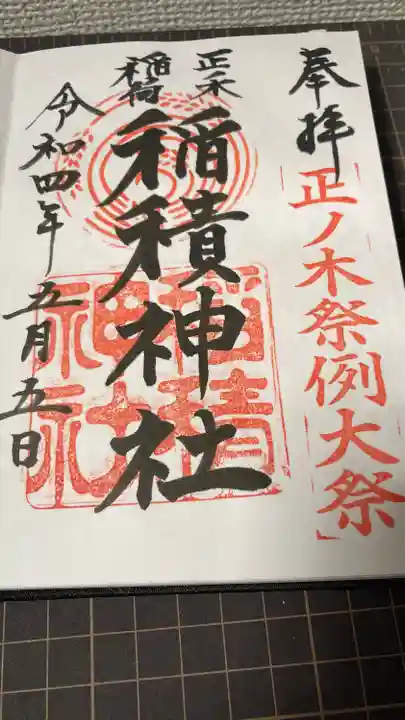 奉拝
「正ノ木祭例大祭」
正木
稲荷
稲積神社
稲積
神社
令和四年五月五日